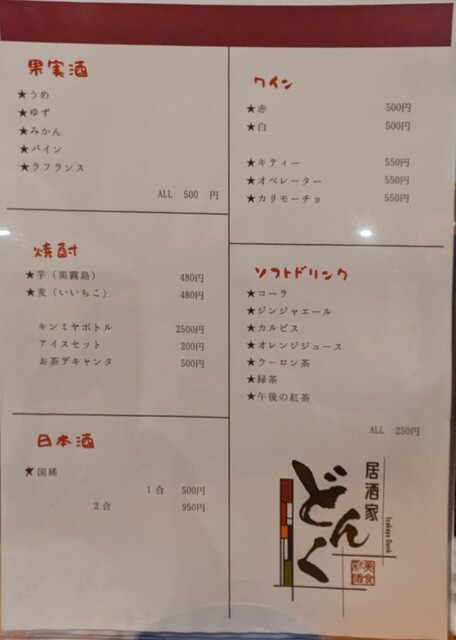 果実酒
★うめ
★ゆず
★みかん
★パイン
★ラフランス
ALL 500 円
焼酎
★芋（黒霧島） 480円
★麦（いいちこ） 480円
キンミヤボトル 2500円
アイスセット 200円
お茶デキャンタ 500円
日本酒
★国稀
1合 500円
2合 950円
ワイン
★赤 500円
★白 500円
★キティー 550円
★オペレーター 550円
★カリモーチョ 550円
ソフトドリンク
★コーラ
★ジンジャエール
★カルピス
★オレンジジュース
★ウーロン茶
★緑茶
★午後の紅茶
ALL 250円
居酒家
どんく
Izakaya Donk